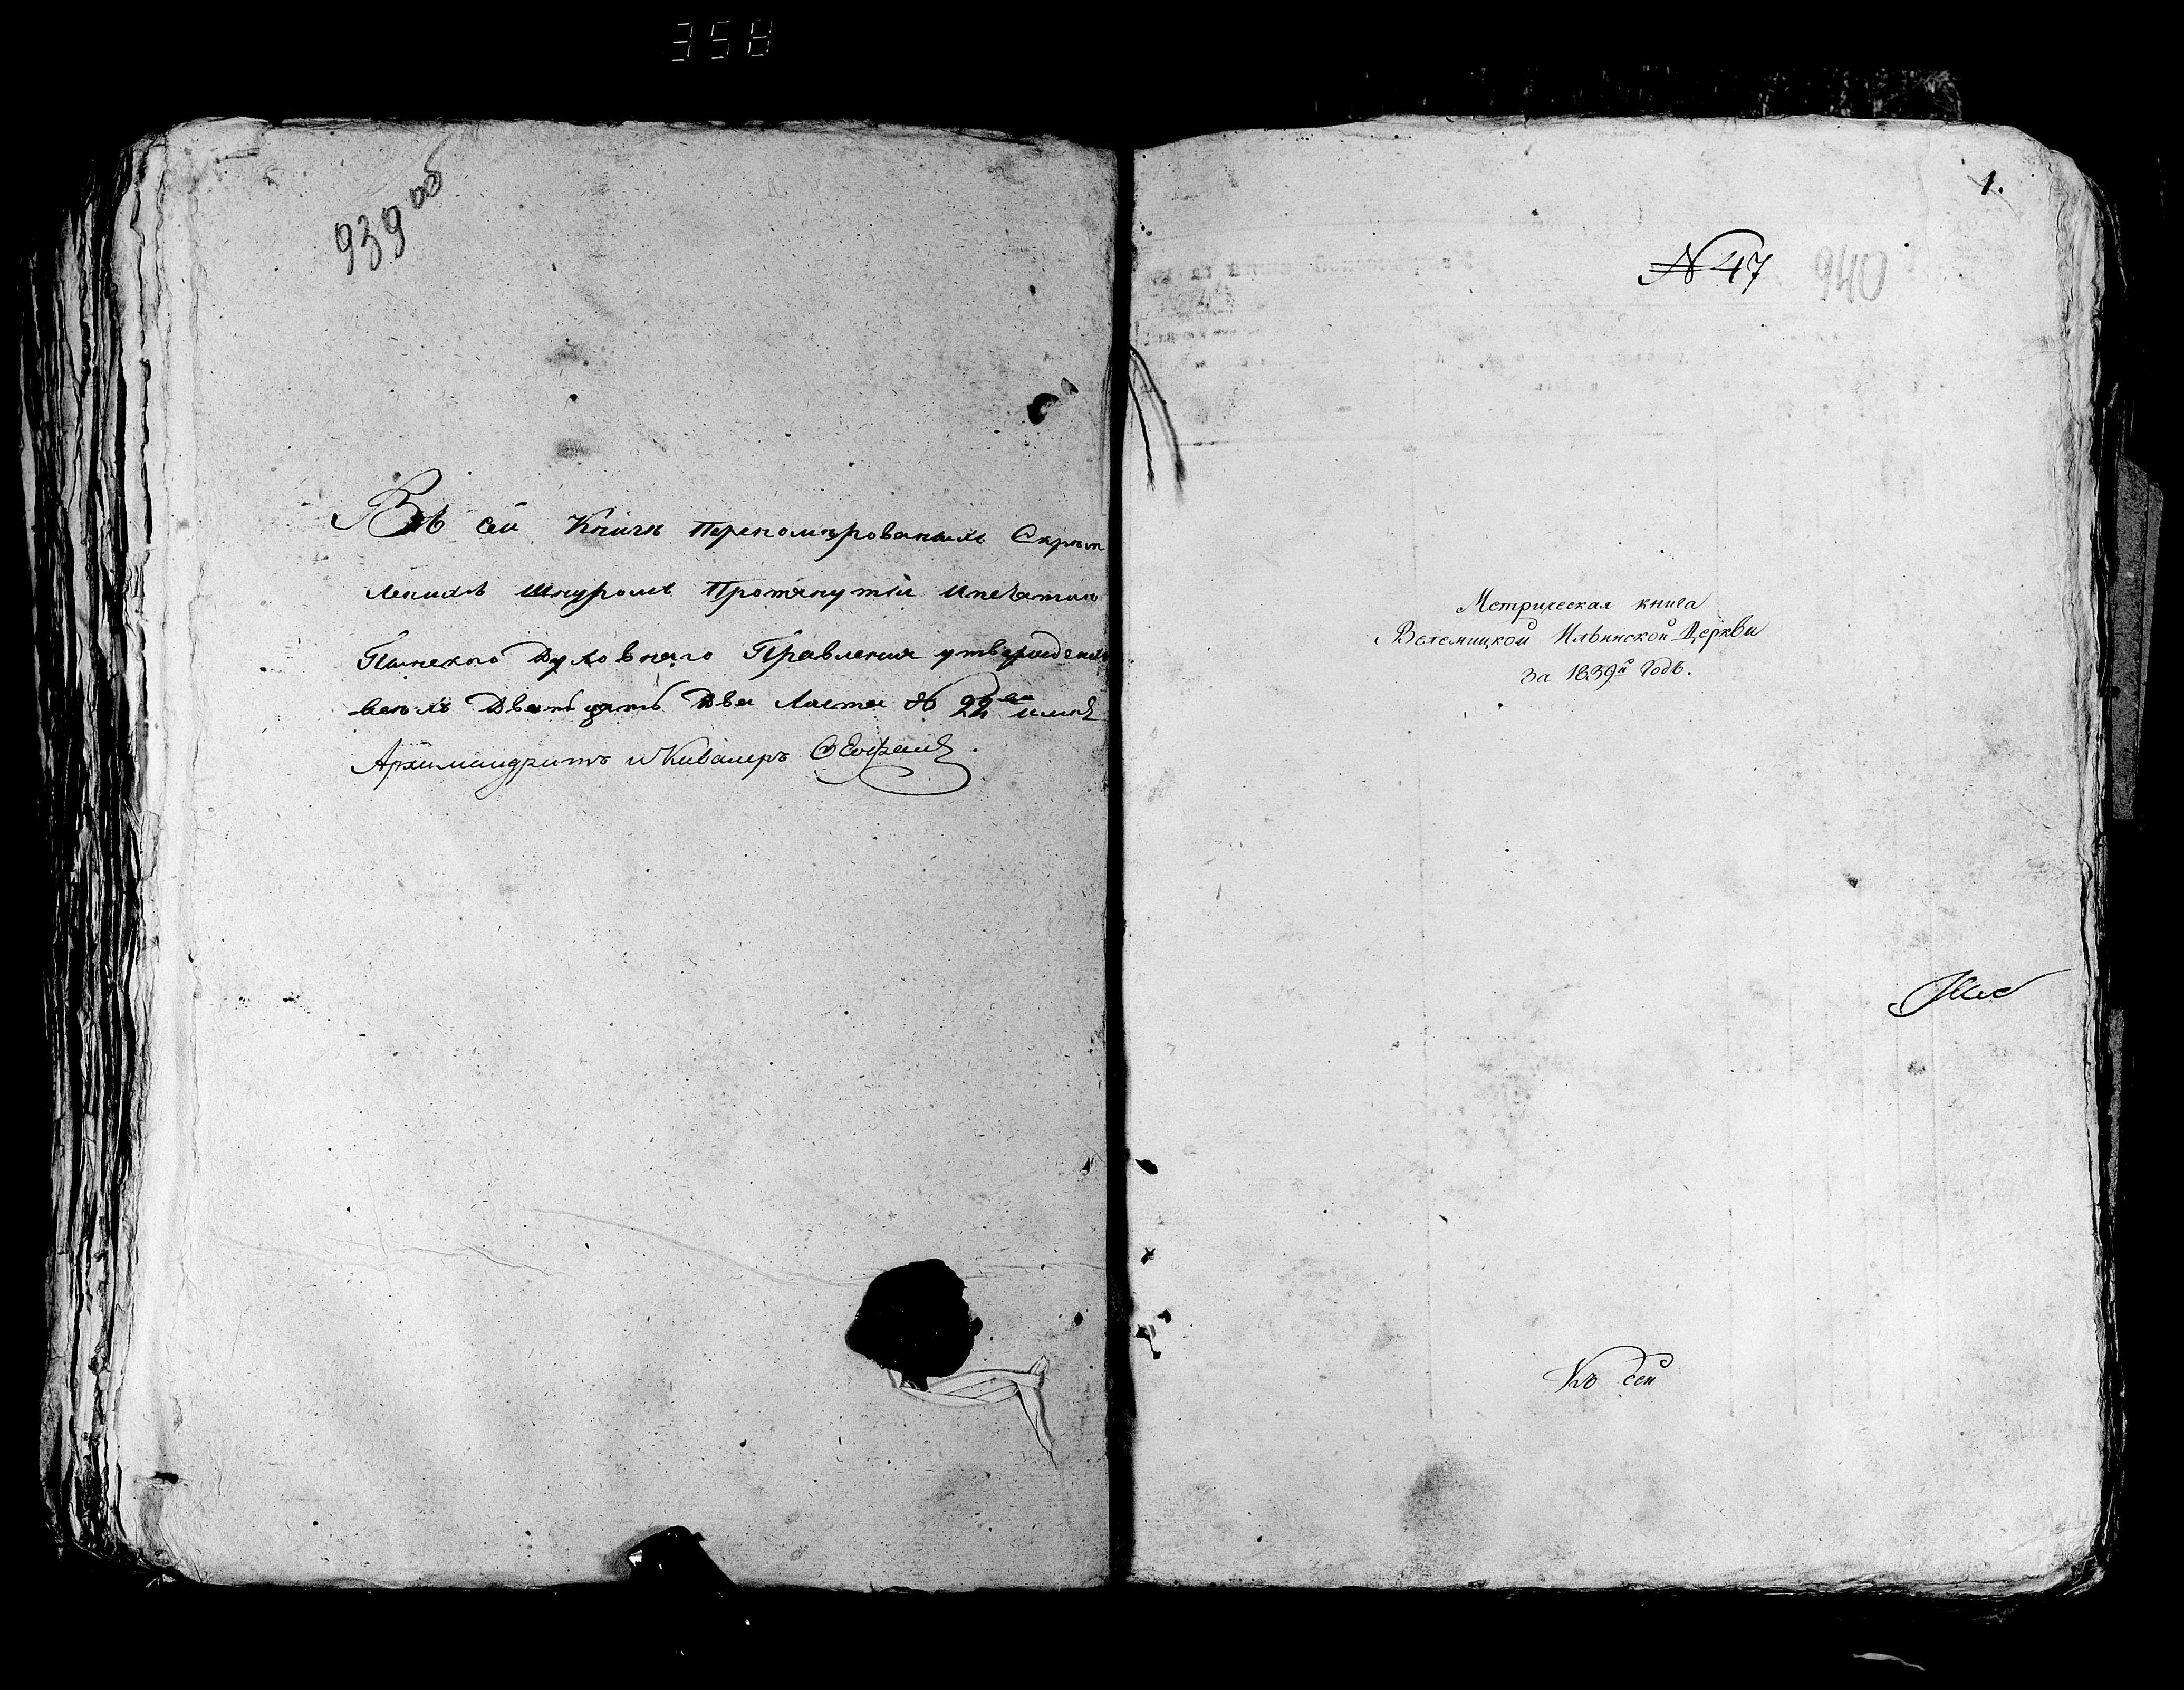 358
939 об
Въ сей Книге Переномерованыхъ Скреп
леныхъ Шнуромъ Протянутой ипечатью
Пинского Духовнаго Правления утвержденыхъ
всехъ Двадцать Два Листа
Архимандритъ и Кавалеръ
1.
№ 47
940
Метрическая книга
Велемицкой Ильинской Церкви
за 1839й Годъ.
Къ сей